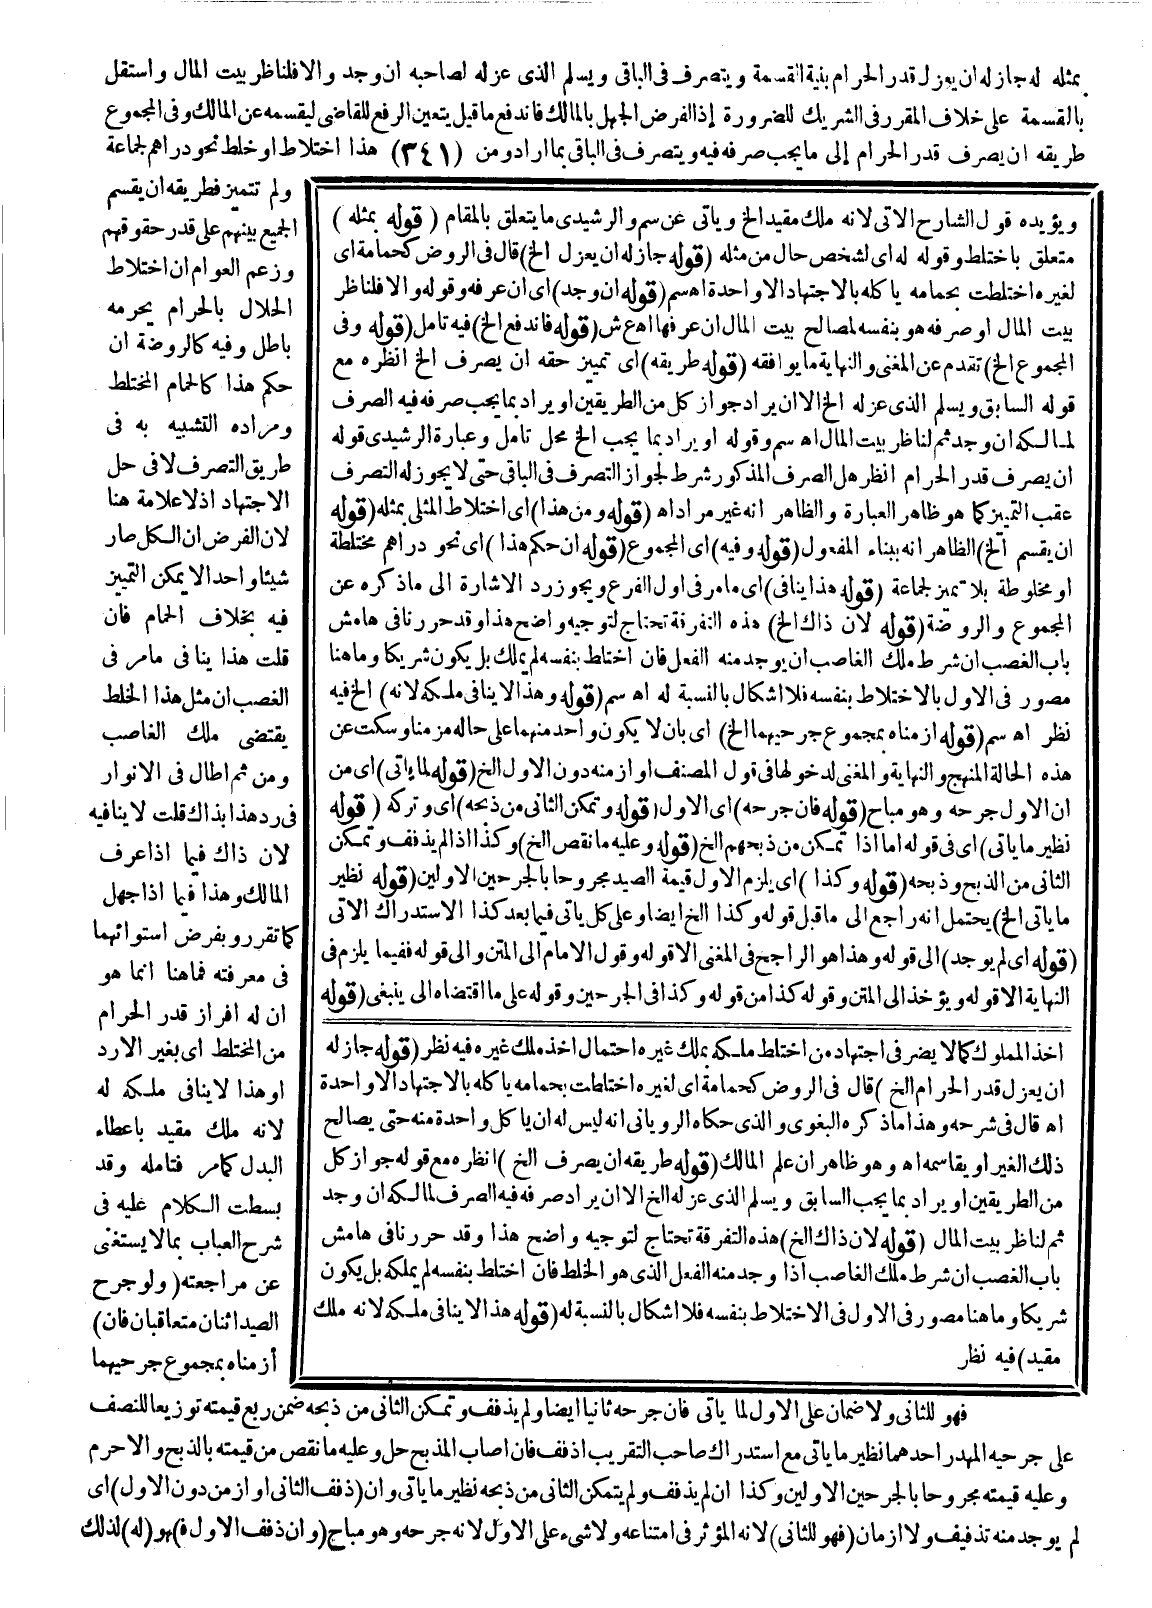 بمثله له جاز له ان يعزل قدر الحرام بنية القسمة ويتصرف فى الباقى ويسلم الذى عزله لصاحبه ان وجد والا فلناظر بيت المال واستقل
بالقسمة على خلاف المقرر فى الشريك للضرورة إذ الفرض الجهل بالمالك فاندفع ما قيل يتعين الرفع للقاضى ليقسمه عن المالك وفى المجموع
طريقه ان يصرف قدر الحرام إلى ما يجب صرفه فيه ويتصرف فى الباقى بما اراد ومن (٣٤١) هذا اختلاط او خلط نحو دراهم لجماعة
ولم تتميز فطريقه ان يقسم
الجميع بينهم على قدر حقوقهم
وزعم العوام ان اختلاط
الحلال بالحرام يحرمه
باطل وفيه كالروضة ان
حكم هذا كالحمام المختلط
ومراده التشبيه به فى
طريق التصرف لا فى حل
الاجتهاد اذ لا علامة هنا
لان الفرض ان الكل صار
شيئا واحدا لا يمكن التمييز
فيه بخلاف الحمام فان
قلت هذا ينافى ما مر فى
الغصب ان مثل هذا الخلط
يقتضى ملك الغاصب
ومن ثم اطال فى الانوار
فى رد هذا بذاك قلت لا ينافيه
لان ذاك فيما اذا عرف
المالك وهذا فيما اذا جهل
كما تقرر وبفرض استوائهما
فى معرفته فما هنا انما هو
ان له افراز قدر الحرام
من المختلط اى بغير الارد
او هذا لا ينافى ملكه له
لانه ملك مقيد باعطاء
البدل كما مر فتامله وقد
بسطت الكلام عليه فى
شرح العباب بما لا يستغنى
عن مراجعته (ولو جرح
الصيد اثنان متعاقبان فان)
أزمناه بمجموع جرحيهما
ويؤيده قول الشارح الاتى لانه ملك مقيد الخ وياتى عن سم والرشيدى ما يتعلق بالمقام (قوله بمثله)
متعلق باختلط وقوله له اى لشخص حال من مثله (قوله جاز له ان يعزل الخ) قال فى الروض كحمامة اى
لغيره اختلطت بحمامه ياكله بالاجتهاد الا واحدة اه سم (قوله ان وجد) اى ان عرفه وقوله والا فلناظر
بيت المال او صرفه هو بنفسه لمصالح بيت المال ان عرفها اه ع ش (قوله فاندفع الخ) فيه تامل (قوله وفى
المجموع الخ) تقدم عن المغنى والنهاية ما يوافقه (قوله طريقه) اى تمييز حقه ان يصرف الخ انظره مع
قوله السابق ويسلم الذى عزله الخ الا ان يراد جواز كل من الطريقين او يراد بما يجب صرفه فيه الصرف
لمالكه ان وجد ثم لناظر بيت المال اه سم وقوله او يراد بما يجب الخ محل تامل وعبارة الرشيدى قوله
ان يصرف قدر الحرام انظر هل الصرف المذكور شرط لجواز التصرف فى الباقى حتى لا يجوز له التصرف
عقب التمييز كما هو ظاهر العبارة والظاهر انه غير مراد اه (قوله ومن هذا) اى اختلاط المثلى بمثله (قوله
ان يقسم الخ) الظاهر انه ببناء المفعول (قوله وفيه) اى المجموع (قوله ان حكم هذا) اى نحو دراهم مختلطة
او مخلوطة بلا تميز لجماعة (قوله هذا ينافى) اى ما مر فى اول الفرع ويجوز رد الاشارة الى ما ذكره عن
المجموع والروضة (قوله لان ذاك الخ) هذه التفرقة تحتاج لتوجيه واضح هذا وقد حررنا فى هامش
باب الغصب ان شرط ملك الغاصب ان يوجد منه الفعل فان اختلط بنفسه لم يملك بل يكون شريكا وما هنا
مصور فى الاول بالاختلاط بنفسه فلا اشكال بالنسبة له اه سم (قوله وهذا لا ينافى ملكه لانه) الخ فيه
نظر اه سم (قوله ازمناه بمجموع جرحيهما الخ) اى بان لا يكون واحد منهما على حاله مزمنا وسكت عن
هذه الحالة المنهج والنهاية والمغنى لدخولها فى قول المصنف او ازمنه دون الاول الخ (قوله لما ياتى) اى من
ان الاول جرحه وهو مباح (قوله فان جرحه) اى الاول (قوله وتمكن الثانى من ذبحه) اى وتركه (قوله
نظير ما ياتى) اى فى قوله اما اذا تمكن من ذبحهم الخ (قوله وعليه ما نقص الخ) وكذا اذا لم يذفف وتمكن
الثانى من الذبح وذبحه (قوله وكذا) اى يلزم الاول قيمة الصيد مجروحا بالجرحين الاولين (قوله نظير
ما ياتى الخ) يحتمل انه راجع الى ما قبل قوله وكذا الخ ايضا وعلى كل ياتى فيما بعد كذا الاستدراك الاتى
(قوله اى لم يوجد) الى قوله وهذا هو الراجح فى المغنى الا قوله وقول الامام الى المتن والى قوله ففيما يلزم فى
النهاية الا قوله ويؤخذ الى المتن وقوله كذا من قوله وكذا فى الجرحين وقوله على ما اقتضاه الى ينبغى (قوله
اخذ المملوك كما لا يضر فى اجتهاد من اختلط ملكه بملك غيره احتمال اخذ ملك غيره فيه نظر (قوله جاز له
ان يعزل قدر الحرام الخ) قال فى الروض كحمامة اى لغيره اختلطت بحمامه ياكله بالاجتهاد الا واحدة
اه قال فى شرحه وهذا ما ذكره البغوى والذى حكاه الرويانى انه ليس له ان ياكل واحدة منه حتى يصالح
ذلك الغير او يقاسمه اه وهو ظاهر ان علم المالك (قوله طريقه ان يصرف الخ) انظره مع قوله جواز كل
من الطريقين او يراد بما يجب السابق ويسلم الذى عزله الخ الا ان يراد صرفه فيه الصرف لمالكه ان وجد
ثم لناظر بيت المال (قوله لان ذاك الخ) هذه التفرقة تحتاج لتوجيه واضح هذا وقد حررنا فى هامش
باب الغصب ان شرط ملك الغاصب اذا وجد منه الفعل الذى هو الخلط فان اختلط بنفسه لم يملكه بل يكون
شريكا وما هنا مصور فى الاول فى الاختلاط بنفسه فلا اشكال بالنسبة له (قوله هذا لا ينافى ملكه لانه ملك
مقيد) فيه نظر
فهو للثانى ولا ضمان على الاول لما ياتى فان جرحه ثانيا ايضا ولم يذفف وتمكن الثانى من ذبحه ضمن ربع قيمته توزيعا للنصف
على جرحيه المهدر احدهما نظير ما ياتى مع استدراك صاحب التقريب اذ فف فان اصاب المذبح حل وعليه ما نقص من قيمته بالذبح والا حرم
وعليه قيمته مجروحا بالجرحين الاولين وكذا ان لم يذفف ولم يتمكن الثانى من ذبحه نظير ما ياتى وان (ذفف الثانى او ازمن دون الاول) اى
لم يوجد منه تذفيف ولا ازمان (فهو للثانى) لانه المؤثر فى امتناعه ولا شىء على الاول لانه جرحه وهو مباح (وان ذفف الاول ف)هو (له) لذلك